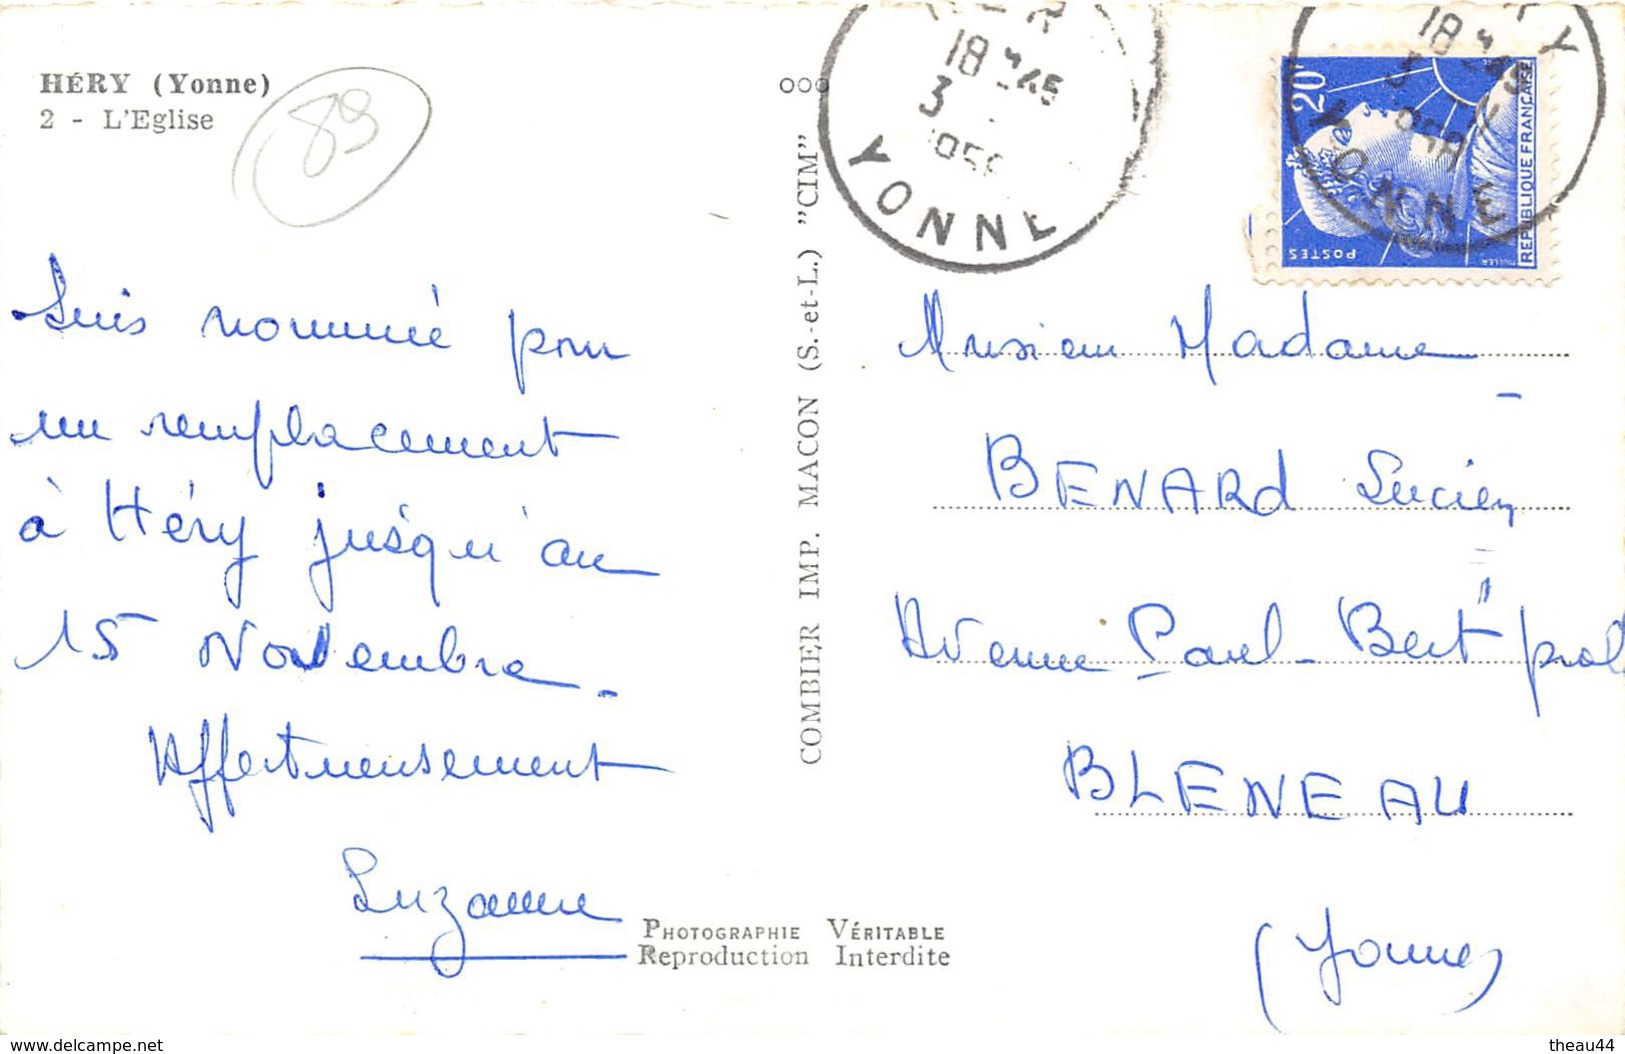 HÉRY (Yonne)
2 - L'Eglise
89
Suis nommé pour
un remplacement
à Héry jusqu'au
15 Novembre.
Affectueusement
Suzanne
COMBIER IMP. MACON (S.-et-L.) "CIM"
PHOTOGRAPHIE VÉRITABLE
Reproduction Interdite
18 45
3
YONNE
18 45
3
YONNE
20F
POSTES
MULLER
REPUBLIQUE FRANÇAISE
Monsieur Madame
BENARD Lucien
Avenue Paul-Bert prol
BLENEAU
(Yonne)
www.delcampe.net
theau44